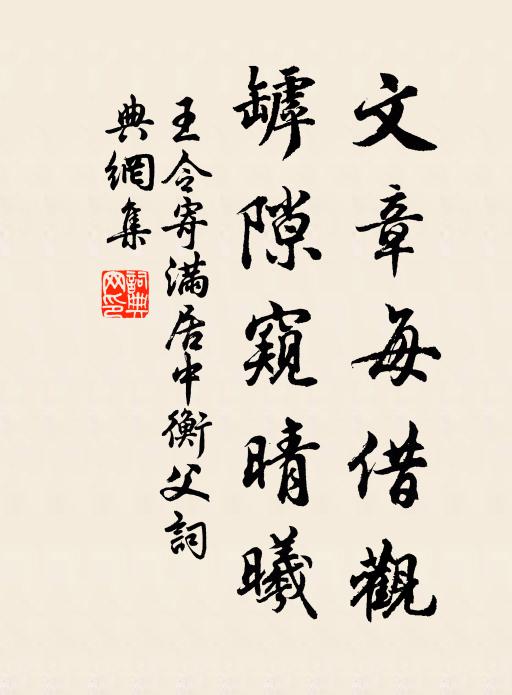 文章每借觀
罅隙窺晴曦
王令寄滿居中衡父詞
典網集
詞典
网印